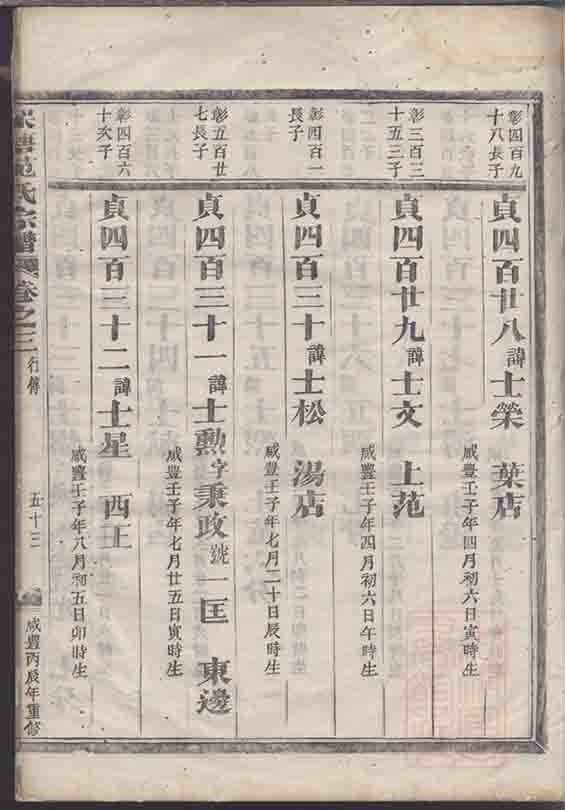 彰四百九
十八長子
貞四百廿八諱士榮 葉店
咸豐壬子年四月初六日寅時生
彰三百三
十五三子
貞四百廿九諱士文 上范
咸豐壬子年四月初六日午時生
彰四百一
長子
貞四百三十諱士松 湯店
咸豐壬子年七月二十日辰時生
彰五百廿
七長子
貞四百三十一諱士勳字秉政號一匡 東邊
咸豐壬子年七月廿五日寅時生
彰四百六
十次子
貞四百三十二諱士星 西王
咸豐壬子年八月初五日卯時生
范氏宗譜 卷之三 行傳 五十三 咸豐丙辰年重修